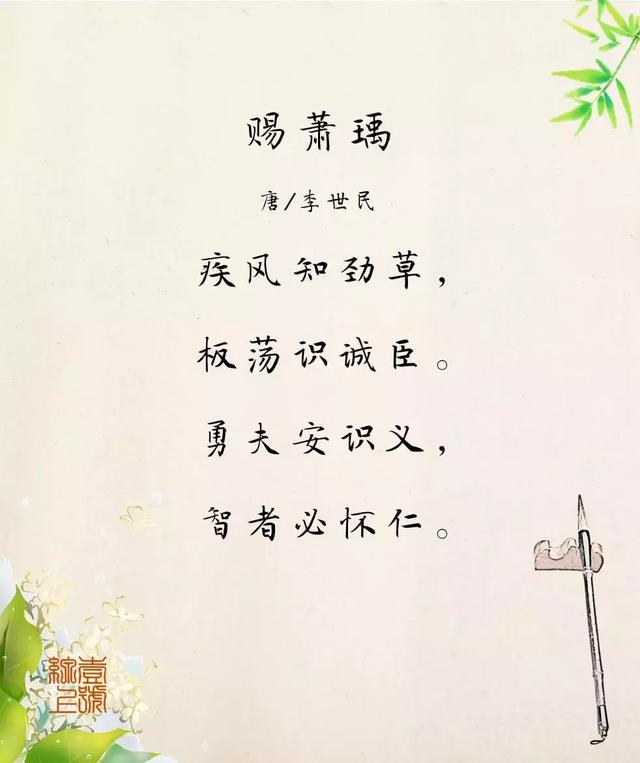 赐萧瑀
唐/李世民
疾风知劲草，
板荡识诚臣。
勇夫安识义，
智者必怀仁。